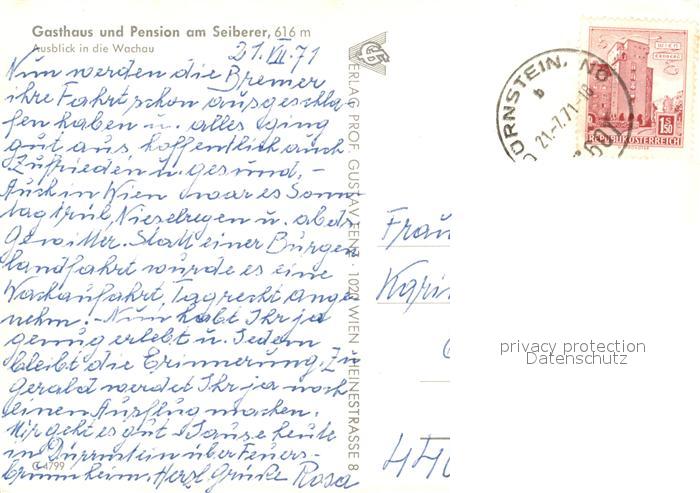 Gasthaus und Pension am Seiberer, 616 m
Ausblick in die Wachau
21.VII.71
Nun werden die Bremer
ihre Fahrt schon ausgeschla-
fen haben u. alles ging
gut aus hoffentlich auch
Zufrieden u. gesund, -
Auch in Wien war es Sonn
tag trüb, Nieselregen u. abds
Gewitter. Statt einer Burgen
landfahrt wurde es eine
Wachaufahrt, Tag recht ange
nehm. - Nun habt Ihr ja
genug erlebt u. Jedem
bleibt die Erinnerung. Zu
Gerald werdet Ihr ja noch
einen Ausflug machen.
Mir geht es gut Jause heute
in Dürrnstein über Feuers-
brunnheim. Herzl. Grüße Rosa
C 4799
VERLAG PROF. GUSTAV FENZ · 1020 WIEN HEINESTRASSE 8
DÜRNSTEIN, NÖ
b
21.-7.71-18
3601
1S50
REPUBLIK ÖSTERREICH
Frau
Karin
privacy protection
Datenschutz
44